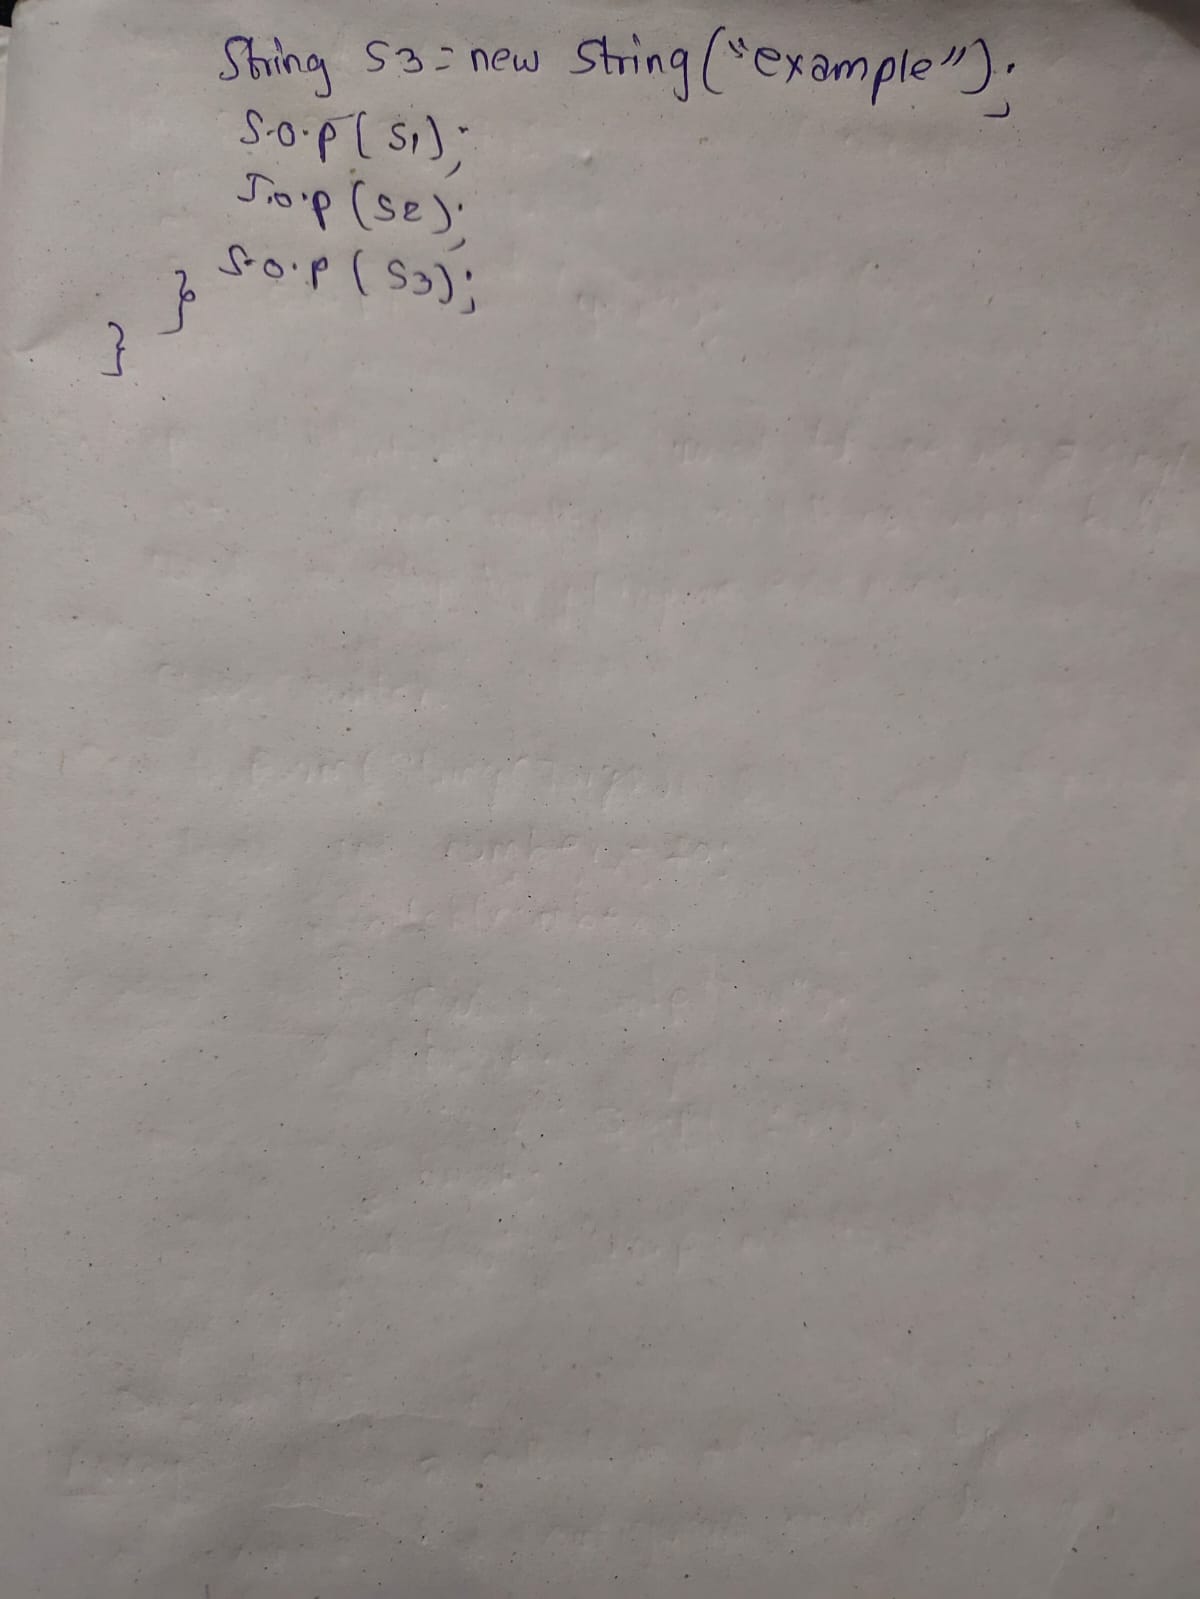 String S3 = new String("example");
S.o.p(S1);
S.o.p(S2);
S.o.p(S3);
}
}